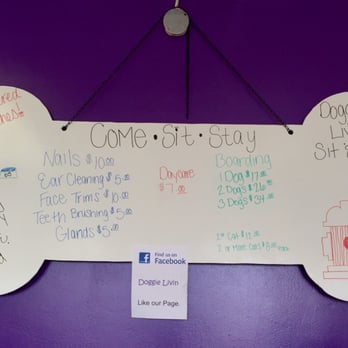 Come • Sit • Stay
Nails $10.00
Ear Cleaning $5.00
Face Trims $10.00
Teeth Brushing $5.00
Glands $5.00
Daycare
$7.00
Boarding
1 Dog $17.00
2 Dog's $26.00
3 Dogs $34.00
1 Cat $12.00
2 or More Cats $8.00 each
Find us on
Facebook
Doggie Livin
Like our Page.
Livi
Sit's